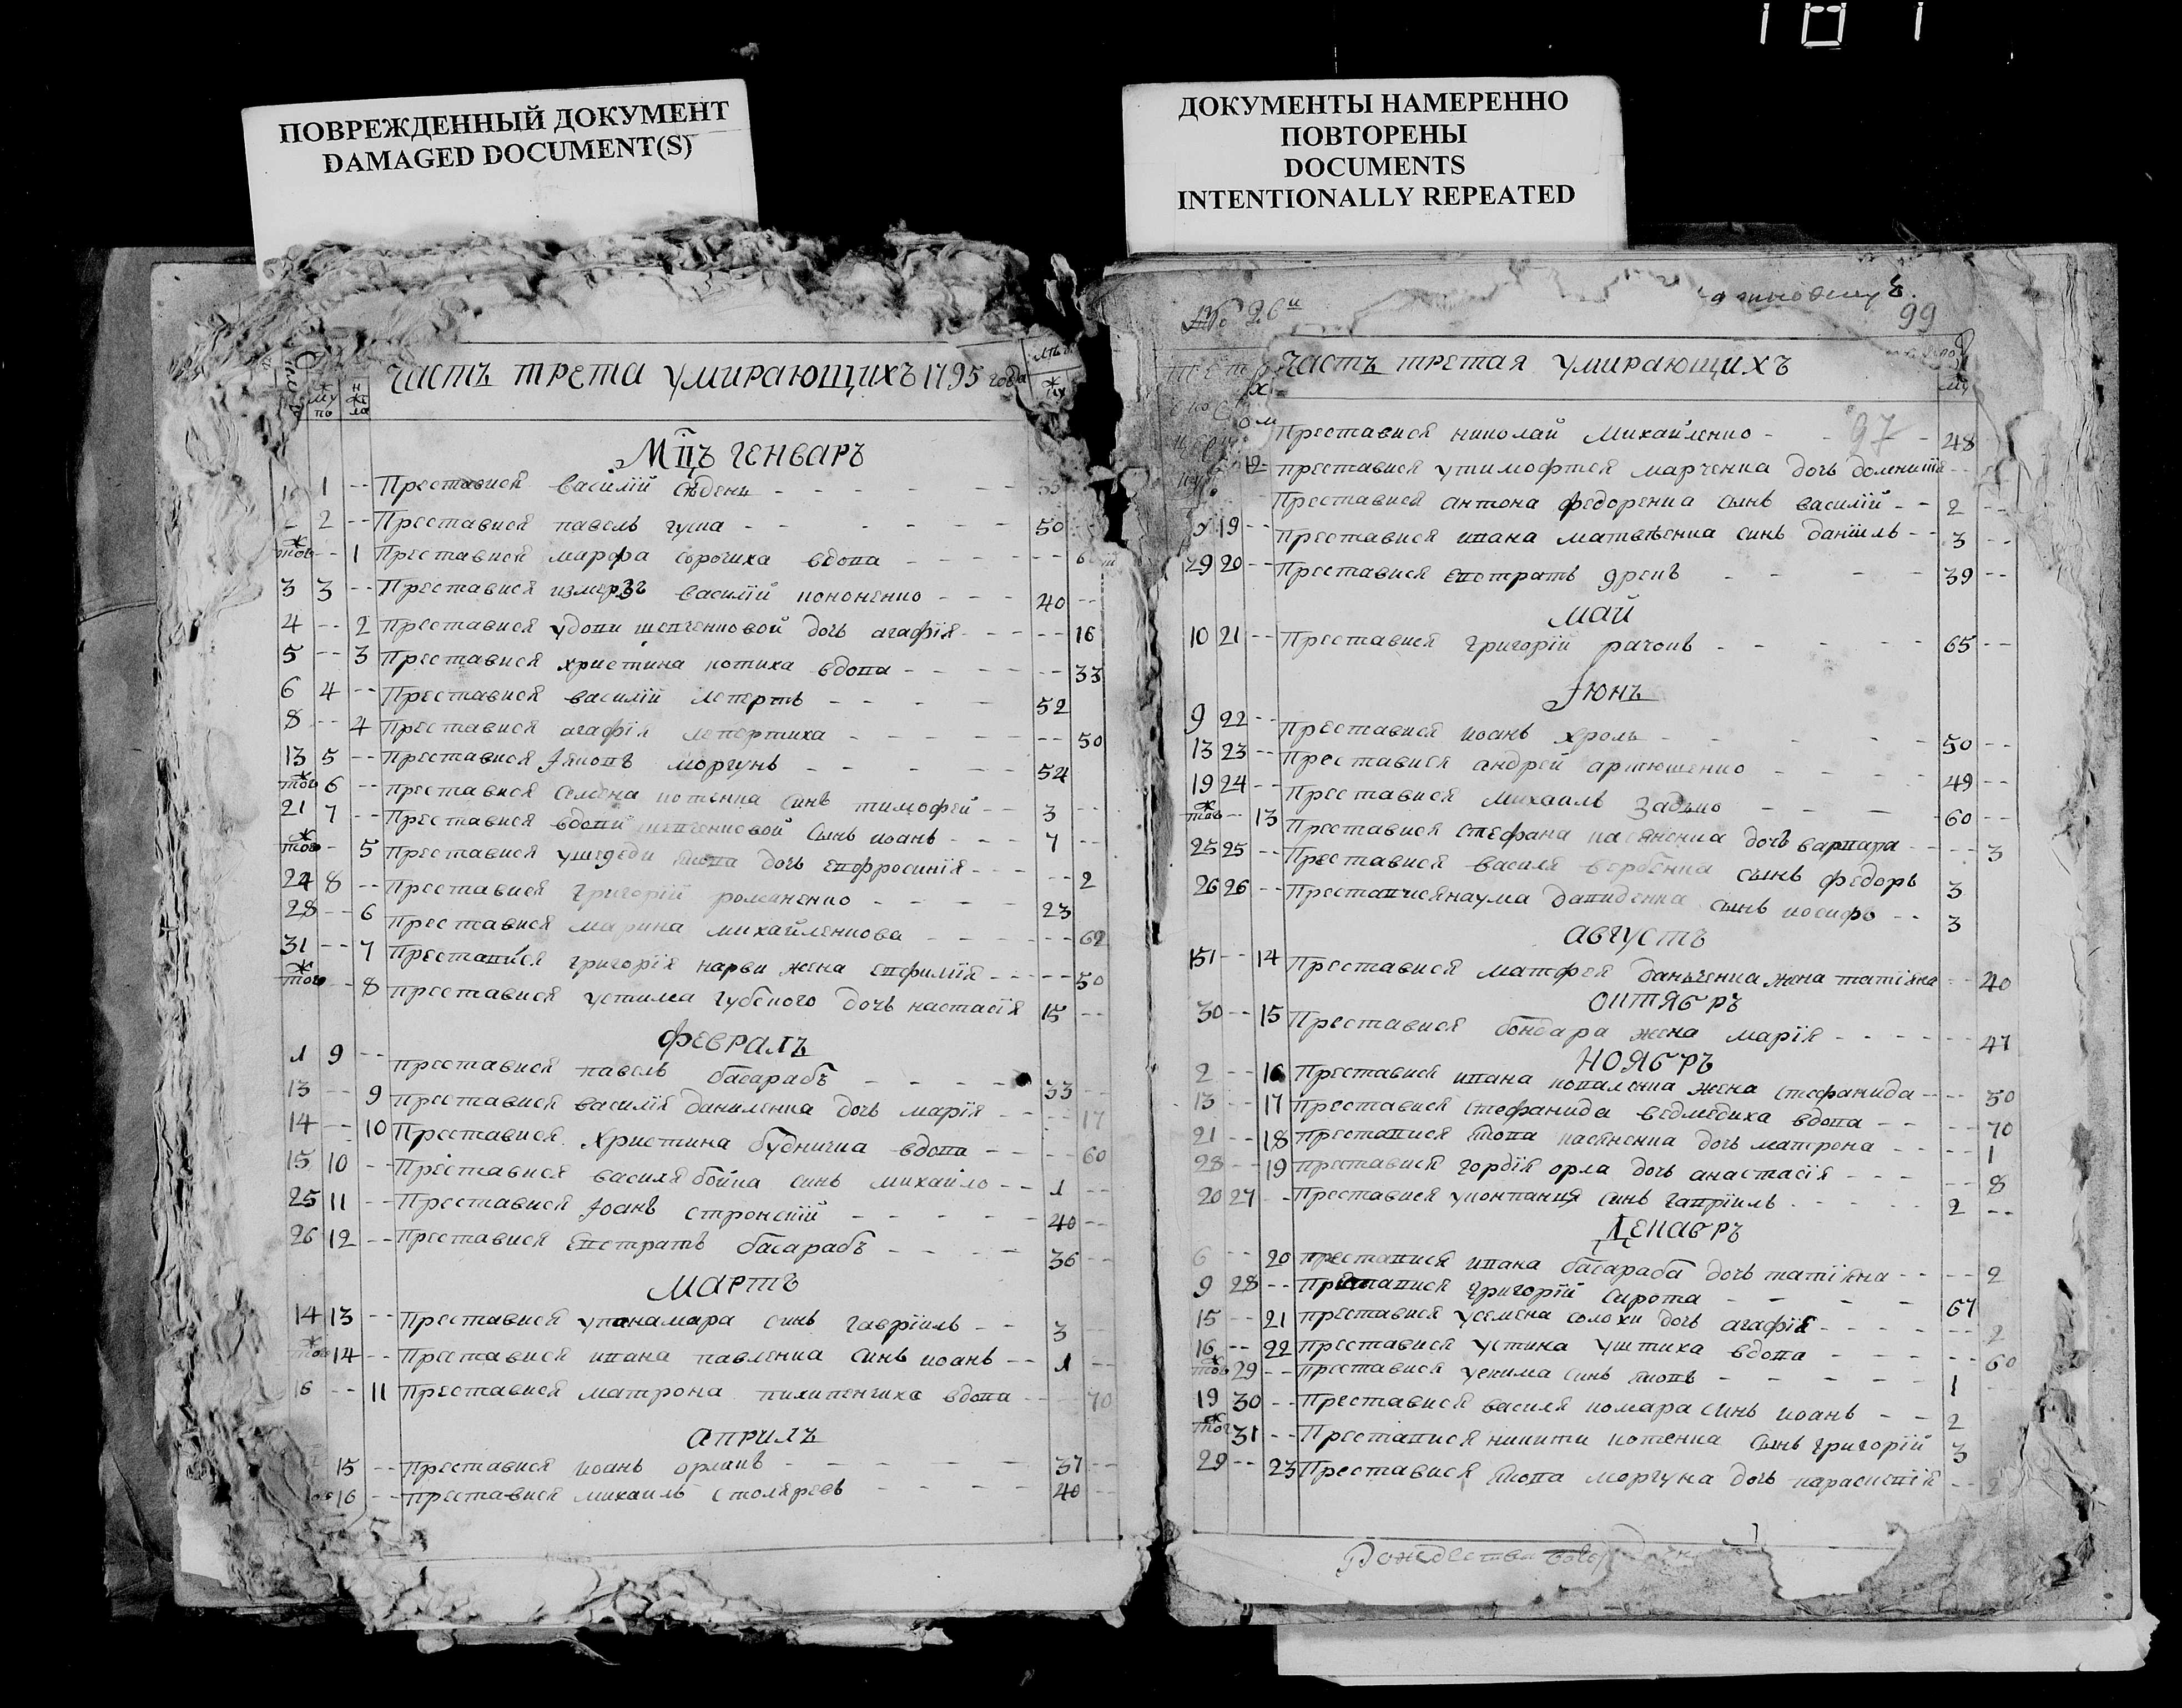 ПОВРЕЖДЕННЫЙ ДОКУМЕНТ
DAMAGED DOCUMENT(S)
Часть трета умирающихъ 1795 года
Мцъ генваръ
1 -- Преставися василий 33
2 -- Преставися павелъ гуша 50
тогож -- 1 Преставися марфа сорочиха вдопа
3 3 -- Преставися измерзъ василий кононенко 40 --
4 -- 2 Преставися удопи шепченковой дочь агафія -- 16
5 -- 3 Преставися христина котиха вдопа -- 33
6 4 -- Преставися василий леперть 52
8 -- 4 Преставися агафія лепертиха -- 50
13 5 -- Преставися Іякопъ моргунъ 54
тогож 6 -- преставися семена котенка синъ тимофей 3 --
21 7 -- Преставися вдопи шепченковой сынъ иоанъ 7 --
тогож -- 5 Преставися дочь епфросинія -- 2
24 8 -- Преставися григорий романенко 23
28 -- 6 Преставися марина михайленкова -- 62
31 -- 7 Престапися григорія нарви жена епфимія -- 50
тогож -- 8 преставися устима губского дочь настасія 15 --
Февралъ
1 9 -- преставися павелъ басарабъ 33 --
13 -- 9 преставися василія даниленка дочь марія -- 17
14 -- 10 Преставися Христина будничка вдопа -- 60
15 10 -- Преставися василя бойка синъ михайло 1 --
25 11 -- Преставися Іоанъ стронский 40 --
26 12 -- Преставися Епстратъ басарабъ 36 --
Мартъ
14 13 -- Преставися упанамара синъ гавріилъ 3 --
тогож 14 -- Преставися ипана павленка синъ иоанъ 1 --
16 -- 11 Преставися матрона пилипенчиха вдопа -- 70
Априлъ
15 -- преставися иоанъ орликъ 37 --
16 -- преставися михаилъ столяревъ 40 --
ДОКУМЕНТЫ НАМЕРЕННО
ПОВТОРЕНЫ
DOCUMENTS
INTENTIONALLY REPEATED
99
Часть третая умирающихъ
97
Преставися николай Михайленко 48
12 преставися утимофтея марченка дочь
Преставися антона федоренка сынъ василий 2 --
19 -- Преставися ипана матвѣенка синъ даніилъ 3 --
29 20 -- Преставися епстратъ 39 --
Май
10 21 -- Преставися григорій рачопъ 65 --
Іюнъ
9 22 -- Преставися иоанъ кроль 50 --
13 23 -- Преставися андрей артюшенко 49 --
19 24 -- Преставися михаилъ 60 --
тогож -- 13 Преставися стефана касяненка дочь варпара -- 3
25 25 -- Преставися василя вербенка сынъ федоръ 3
26 26 -- Престапчися наума дапиденка сынъ иосифъ 3
Августъ
151 -- 14 Преставися матфея данченка жена татіяна -- 40
Октябръ
30 -- 15 Преставися бондара жена марія -- 47
Ноябръ
2 -- 16 Преставися ипана копаленка жена стефанида -- 50
13 -- 17 Преставися стефанида ведмедиха вдопа -- 70
21 -- 18 Престапися якопа касяненка дочь матрона -- 1
28 -- 19 преставися гордія орла дочь анастасія -- 8
20 27 -- Преставися синъ гапріилъ 2 --
Декабръ
6 -- 20 престапися ипана басараба дочь татіяна -- 2
9 28 -- Престапися григорій сирота 67
15 -- 21 преставися усемена солохи дочь агафія -- 2
16 -- 22 преставися устина уштиха вдопа -- 60
тогож 29 -- Преставися уекима синъ якопъ 1
19 30 -- Преставися василя комара синъ иоанъ 2
тогож 31 -- Престапися никити котенка сынъ григорій 3
29 -- 23 Преставися якопа моргуна дочь параскепія -- 2